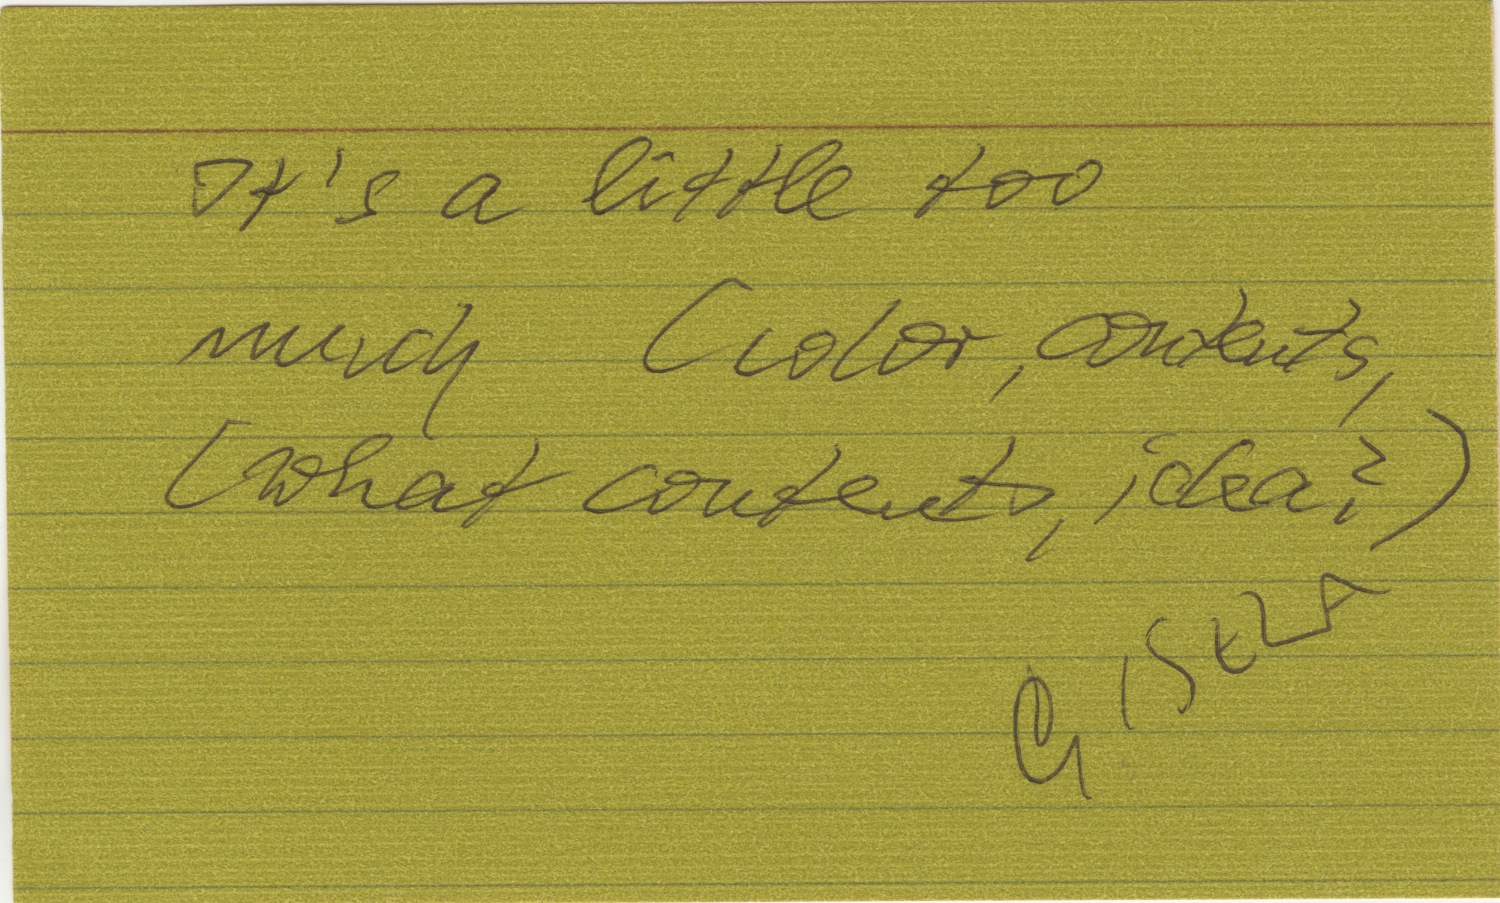 It's a little too
much (color, contents,
(what contents, idea?)
GISELA